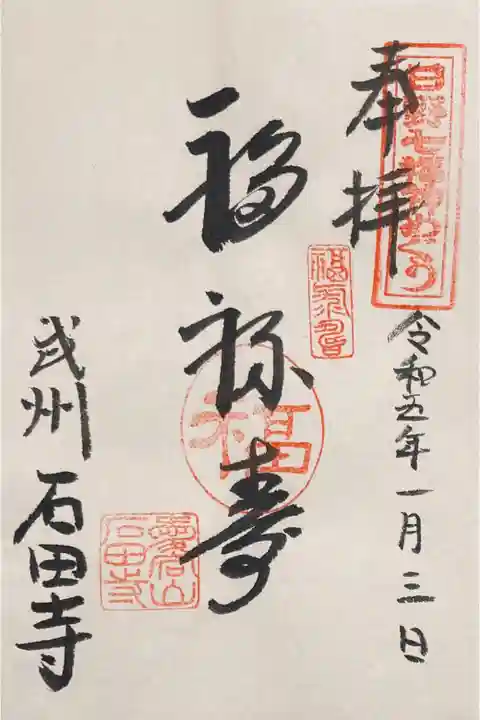 日野七福神めぐり
奉拝
令和五年一月三日
福禄寿
福禄寿
福
愛宕山
石田寺
武州 石田寺